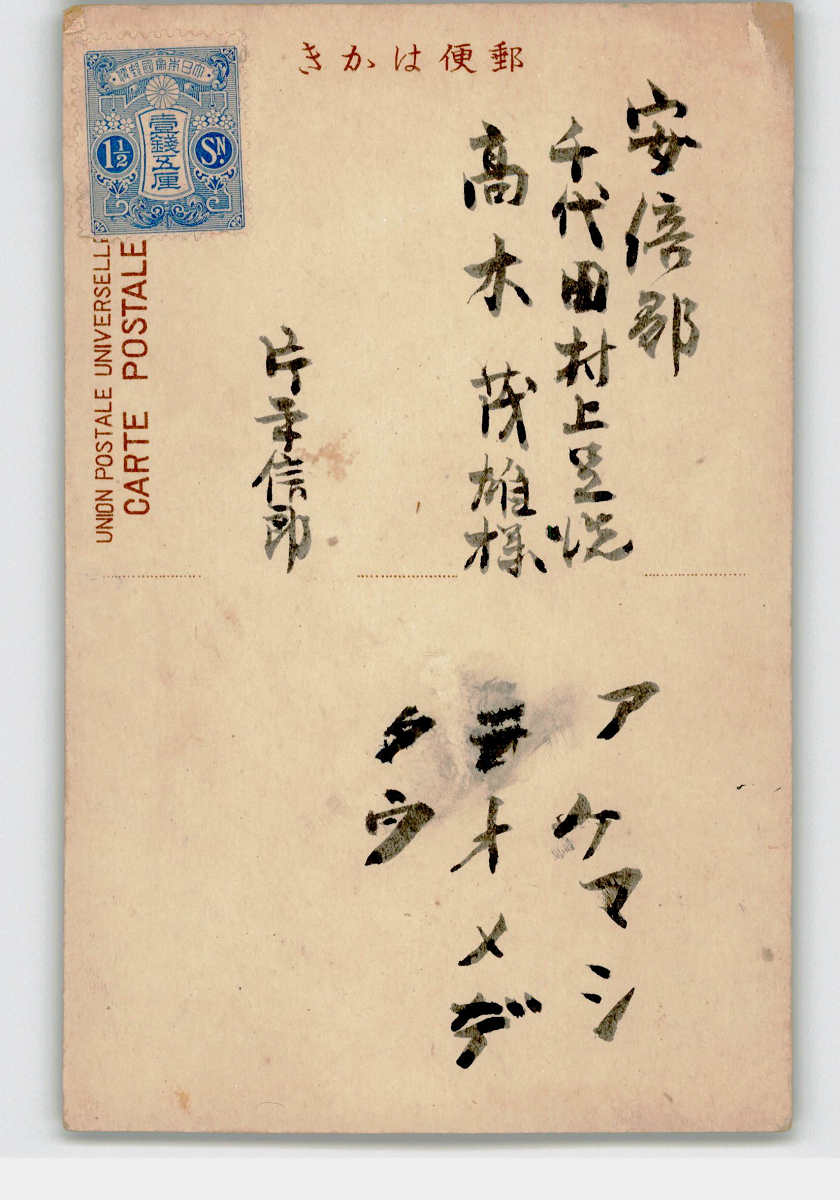 きかは便郵
大日本帝國郵便
壹錢五厘
1½
SN.
UNION POSTALE UNIVERSELLE
CARTE POSTALE
安倍郡
千代田村上足洗
高木茂雄様
片平信郎
アケマシ
テオメデ
タウ